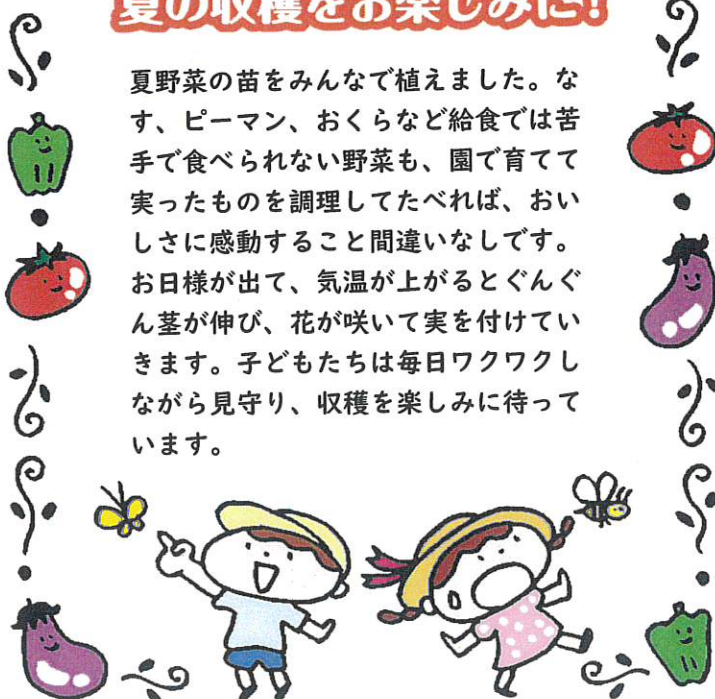 夏の収穫をお楽しみに!
夏野菜の苗をみんなで植えました。な
す、ピーマン、おくらなど給食では苦
手で食べられない野菜も、園で育てて
実ったものを調理してたべれば、おい
しさに感動すること間違いなしです。
お日様が出て、気温が上がるとぐんぐ
ん茎が伸び、花が咲いて実を付けてい
きます。子どもたちは毎日ワクワクし
ながら見守り、収穫を楽しみに待って
います。